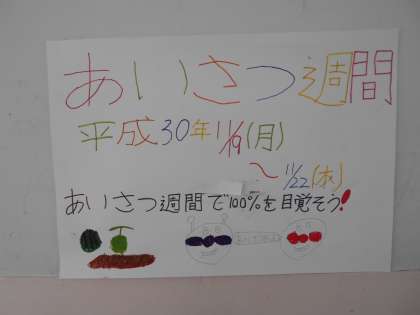 あいさつ週間
平成30年11/19(月)
〜11/22(木)
あいさつ週間で100%を目覚そう!